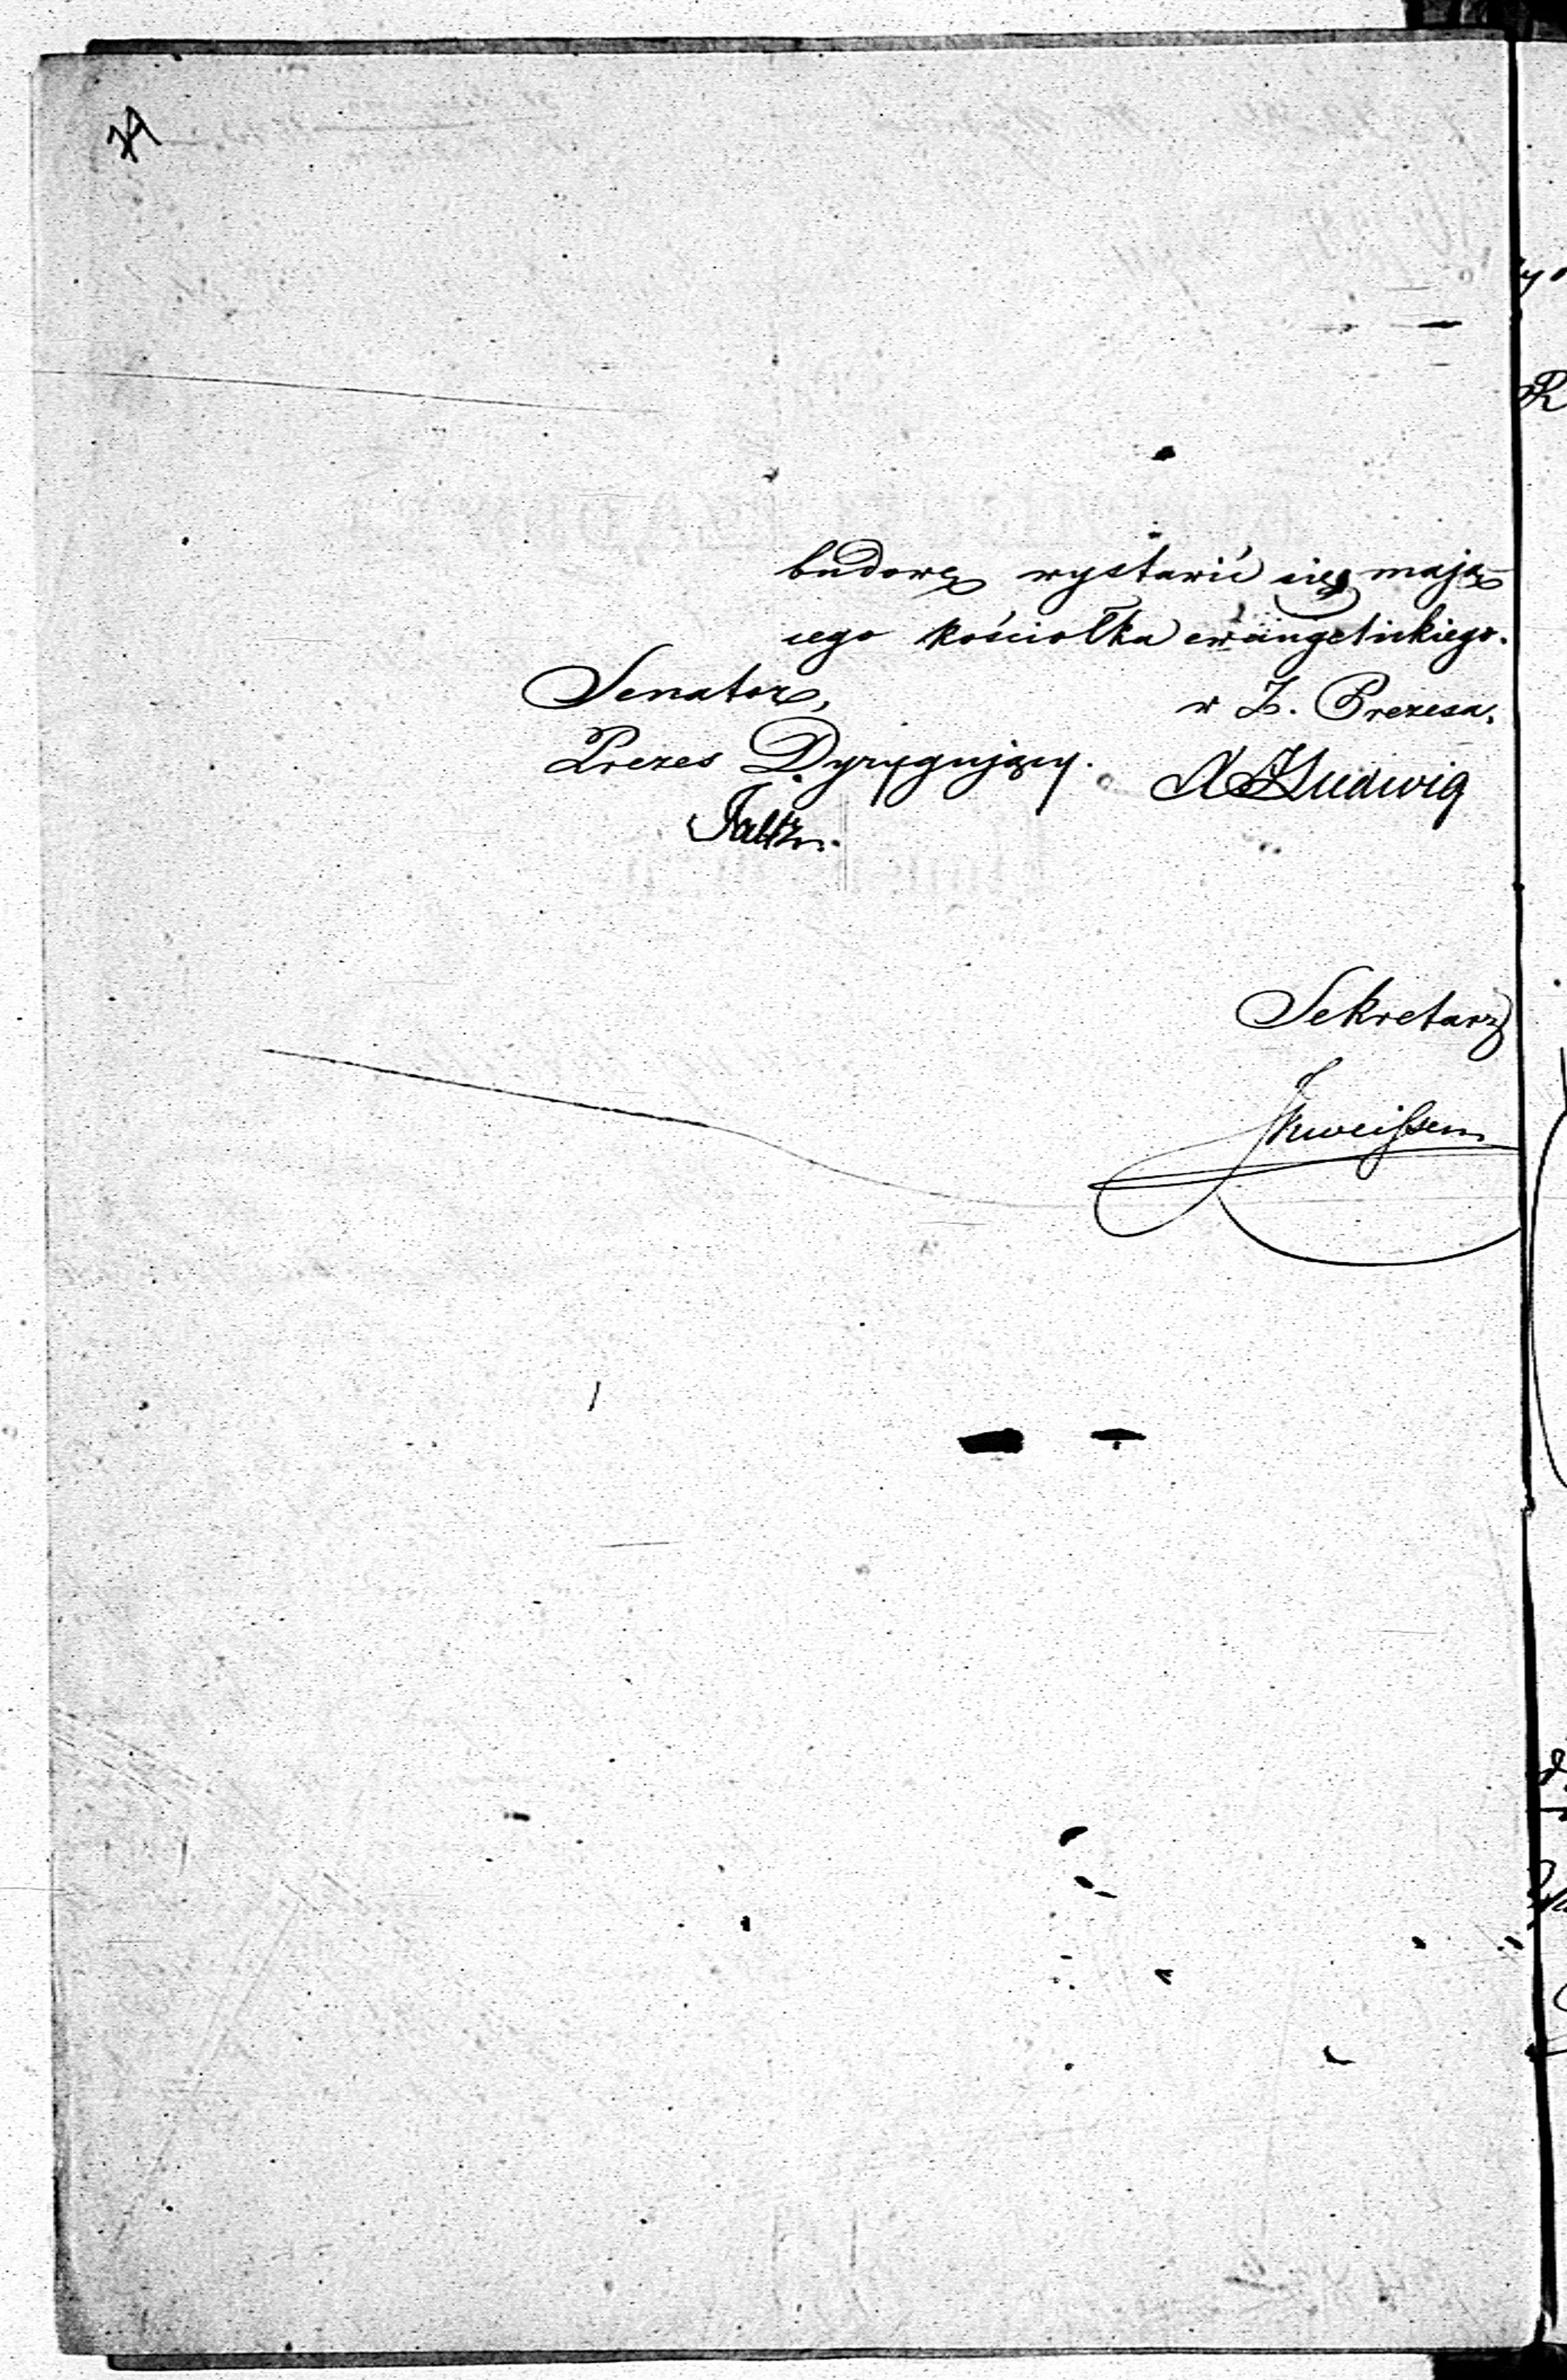 74
budowę wystawić się mają-
cego kościołka ewangelickiego.
Senator,
w Z. Prezesa,
Prezes Dyrygujący.
A Ludwig
Sekretarz